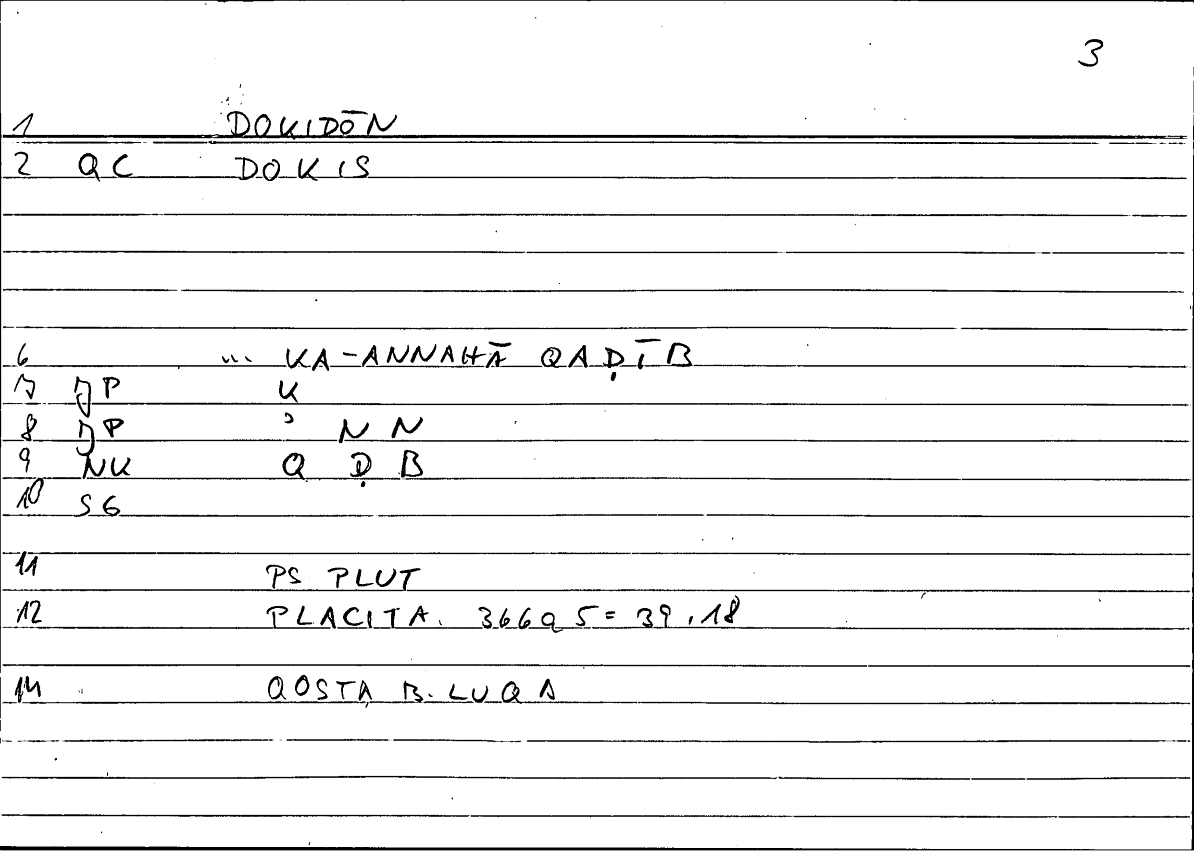 3
1 DOKIDŌN
2 QC DOKIS
6 ... KA-ANNAHĀ QAḌĪB
7 JP K
8 JP ʾ N N
9 NK Q Ḍ B
10 SG
11 PS PLUT
12 PLACITA. 366a 5 = 39,18
14 QOSṬA B. LUQA